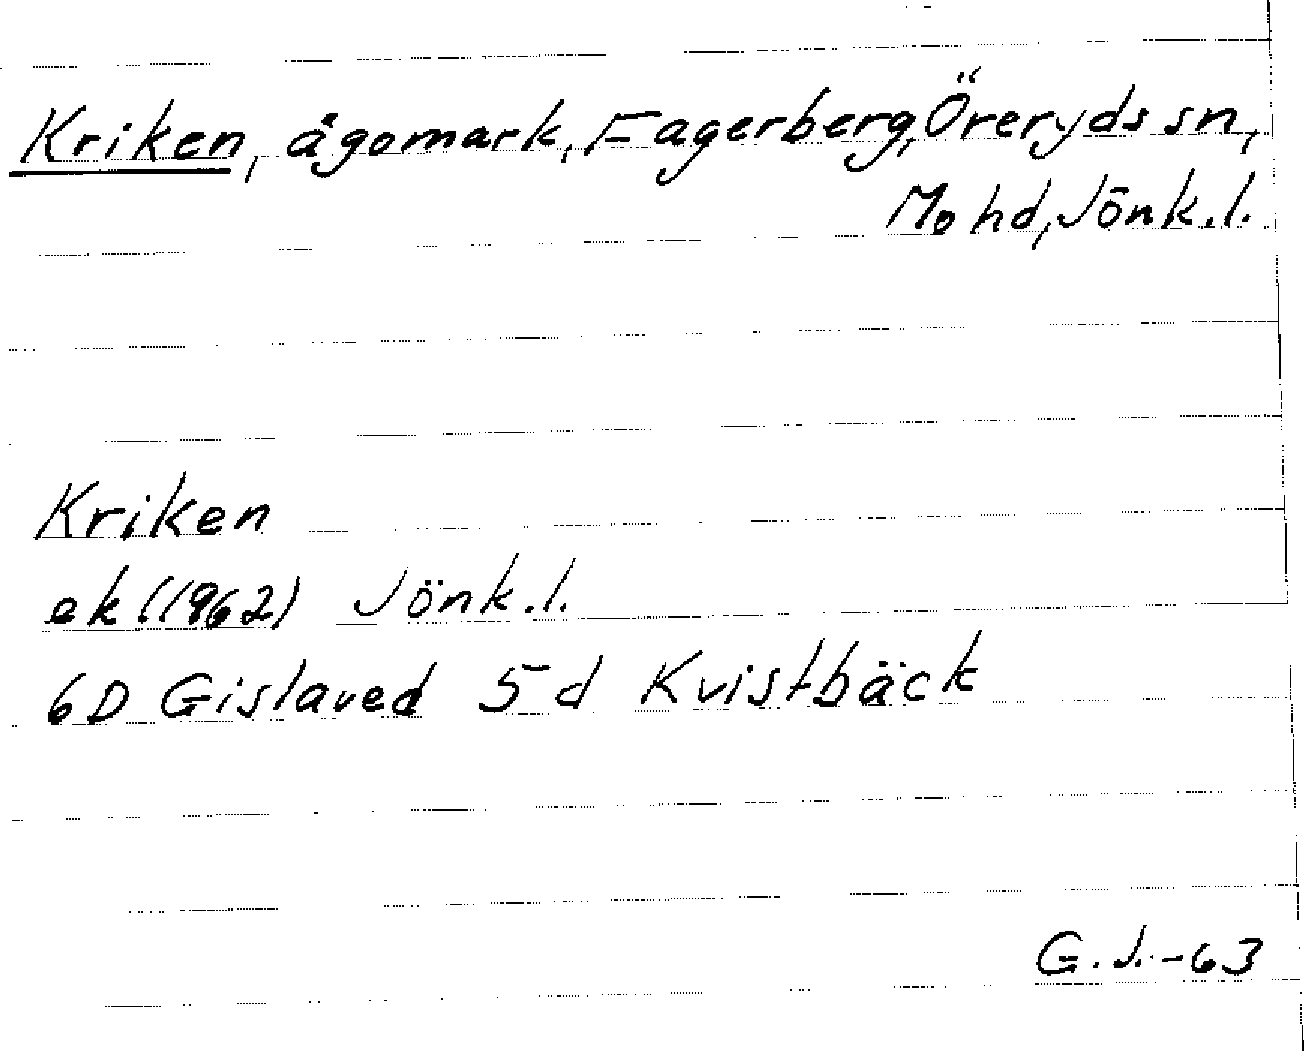 Kriken, ägomark, Fagerberg, Öreryds sn,
Mo hd, Jönk.l.
Kriken
ek (1962) Jönk.l.
6D Gislaved 5d Kvistbäck
G.J.-63